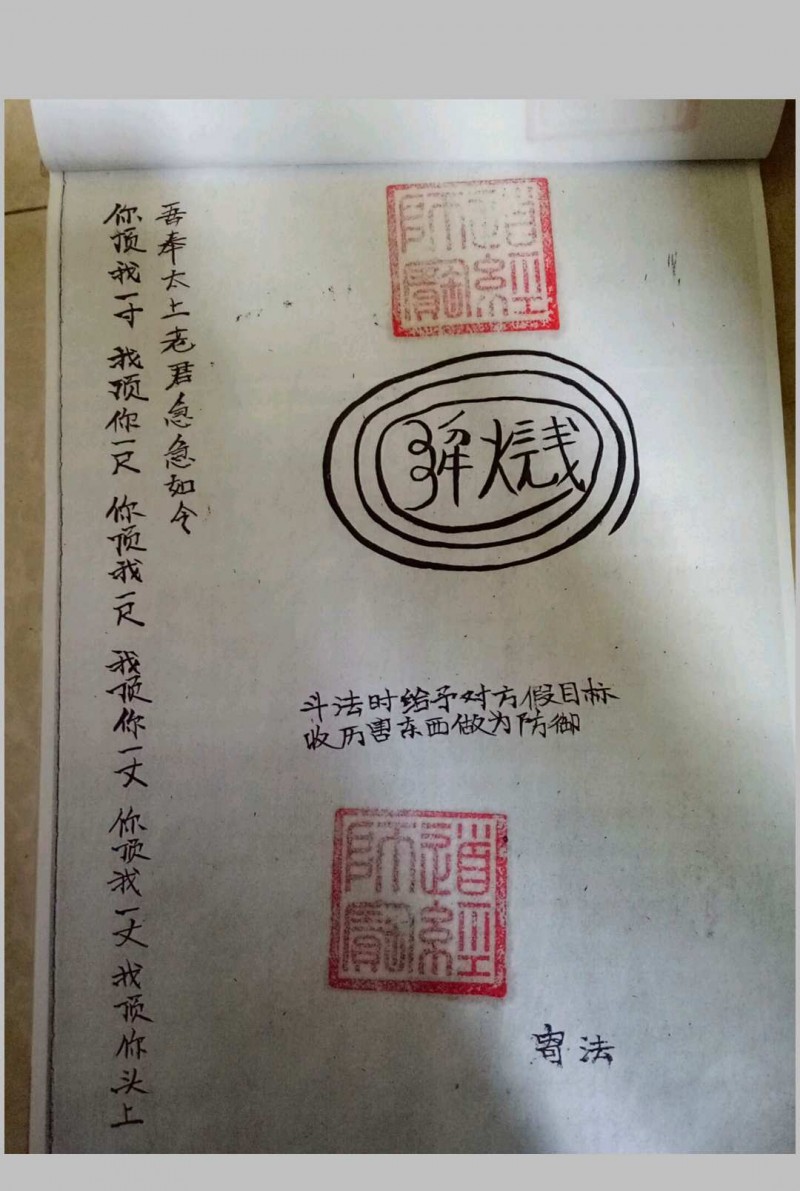 道經
師寶
斗法时给予对方假目标
收历害东西做为防御
道經
師寶
寄法
你顶我一寸 我顶你一尺 你顶我一尺 我顶你一丈 你顶我一丈 我顶你头上
吾奉太上老君急急如令